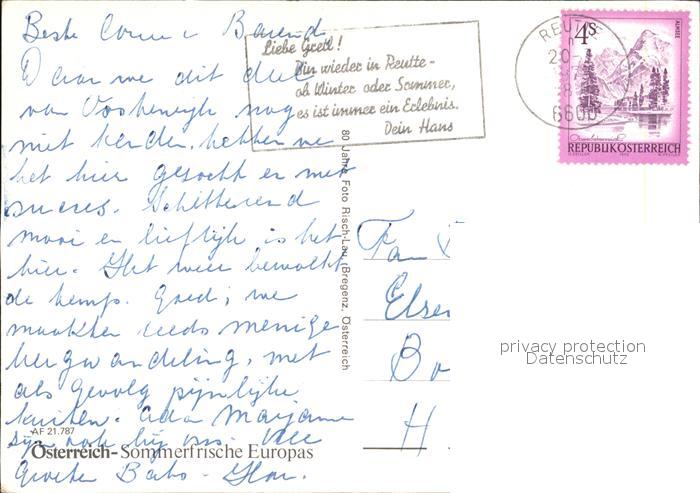 Beste Corrie en Barend
Daar we dit deel
van Oostenrijk nog
niet kenden, hebben we
het hier gezocht en met
succes. Schitterend
mooi en lieflijk is het
hier. Het weer bewolkt
de temp. Goed; we
maakten reeds menige
bergwandeling, met
als gevolg pijnlijke
kuiten. Marjanne
zijn ook bij ons. Vele
Groeten
Liebe Gretl!
Bin wieder in Reutte -
ob Winter oder Sommer,
es ist immer ein Erlebnis.
Dein Hans
REUTTE
20-
6600
4 S
ALMSEE
REPUBLIK ÖSTERREICH
80 Jahre Foto Risch-Lau, Bregenz, Österreich
Fam
Elsen
Bo
H
privacy protection
Datenschutz
AF 21.787
Österreich - Sommerfrische Europas